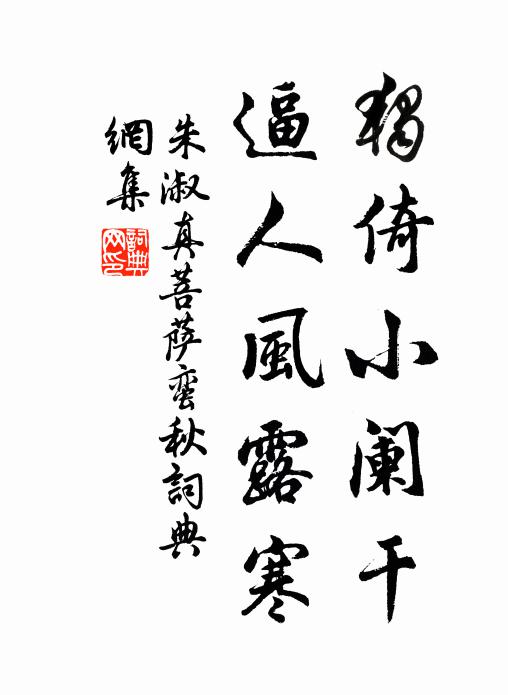 獨倚小阑干
逼人風露寒
朱淑真菩萨蛮秋詞典
網集
詞典
网印